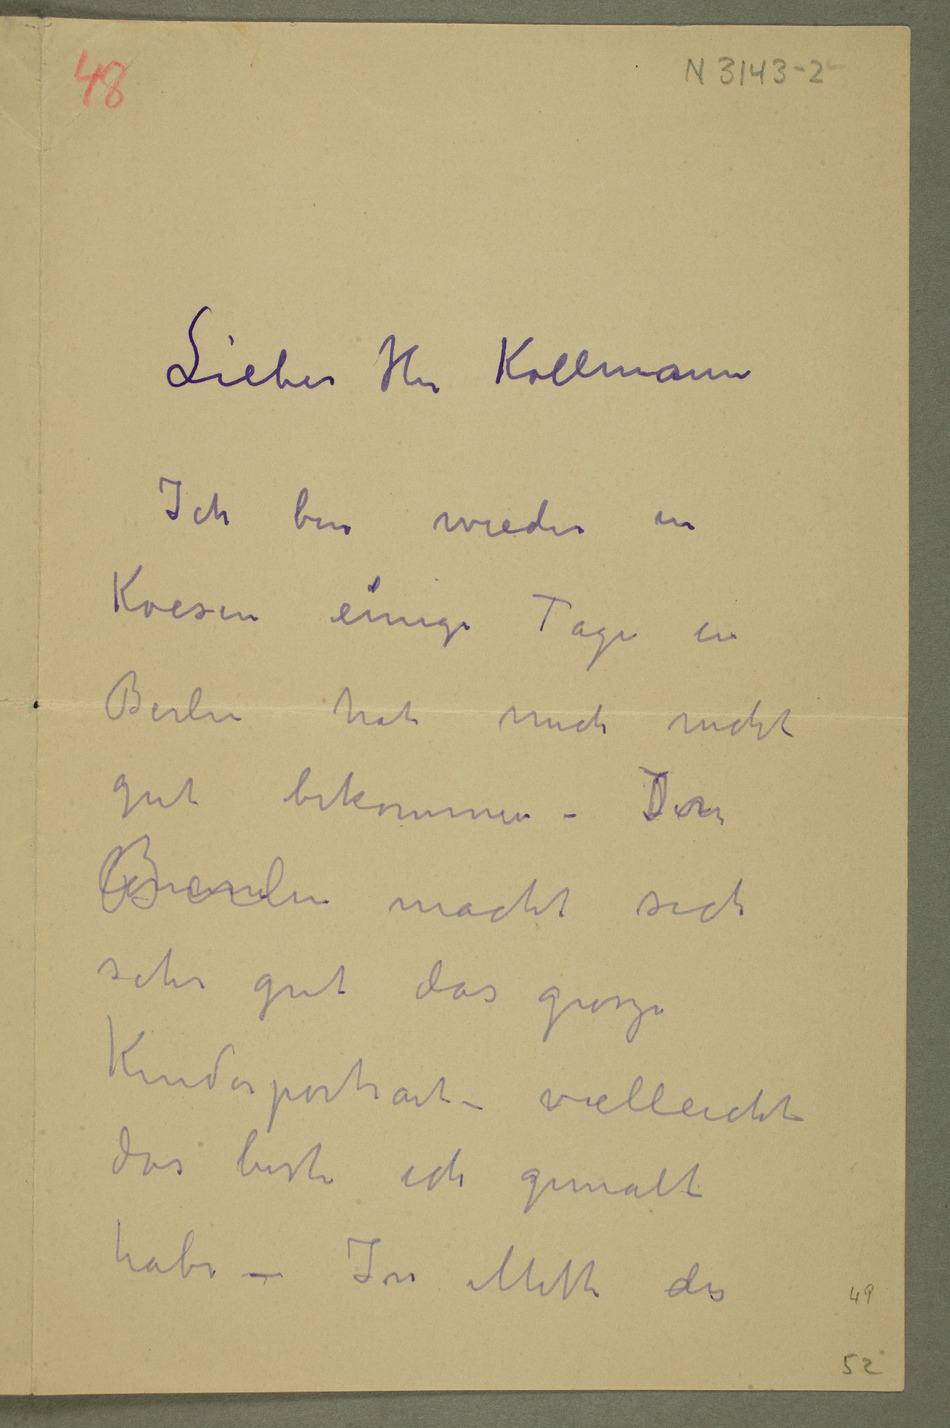 48
N 3143-2
Lieber Herr Kollmann
Ich bin wieder in
Koesen einige Tage in
Berlin hat mich nicht
gut bekommen -
Berlin macht sich
sehr gut das grosze
Kinderportrait - vielleicht
das beste ich gemalt
habe - In Mitte des
49
52